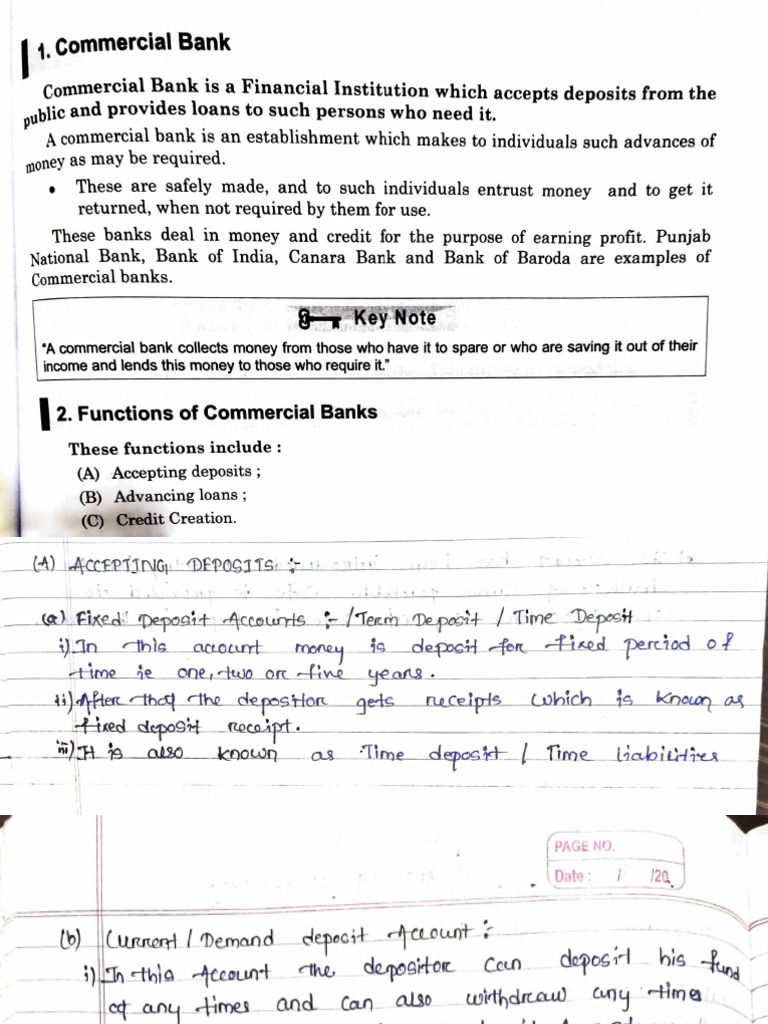 1. Commercial Bank
Commercial Bank is a Financial Institution which accepts deposits from the
public and provides loans to such persons who need it.
A commercial bank is an establishment which makes to individuals such advances of
money as may be required.
• These are safely made, and to such individuals entrust money and to get it
returned, when not required by them for use.
These banks deal in money and credit for the purpose of earning profit. Punjab
National Bank, Bank of India, Canara Bank and Bank of Baroda are examples of
Commercial banks.
Key Note
"A commercial bank collects money from those who have it to spare or who are saving it out of their
income and lends this money to those who require it."
2. Functions of Commercial Banks
These functions include :
(A) Accepting deposits ;
(B) Advancing loans ;
(C) Credit Creation.
(A) ACCEPTING DEPOSITS :-
(a) Fixed Deposit Accounts :- / Term Deposit / Time Deposit
i) In this account money is deposit for fixed period of
time ie one, two or five years.
ii) After that the depositor gets receipts which is known as
fixed deposit receipt.
iii) It is also known as Time deposit / Time liabilities
PAGE NO.
Date : / /20
(b) Current / Demand deposit Account :-
i) In this Account the depositor can deposit his fund
at any times and can also wirthdraw any time